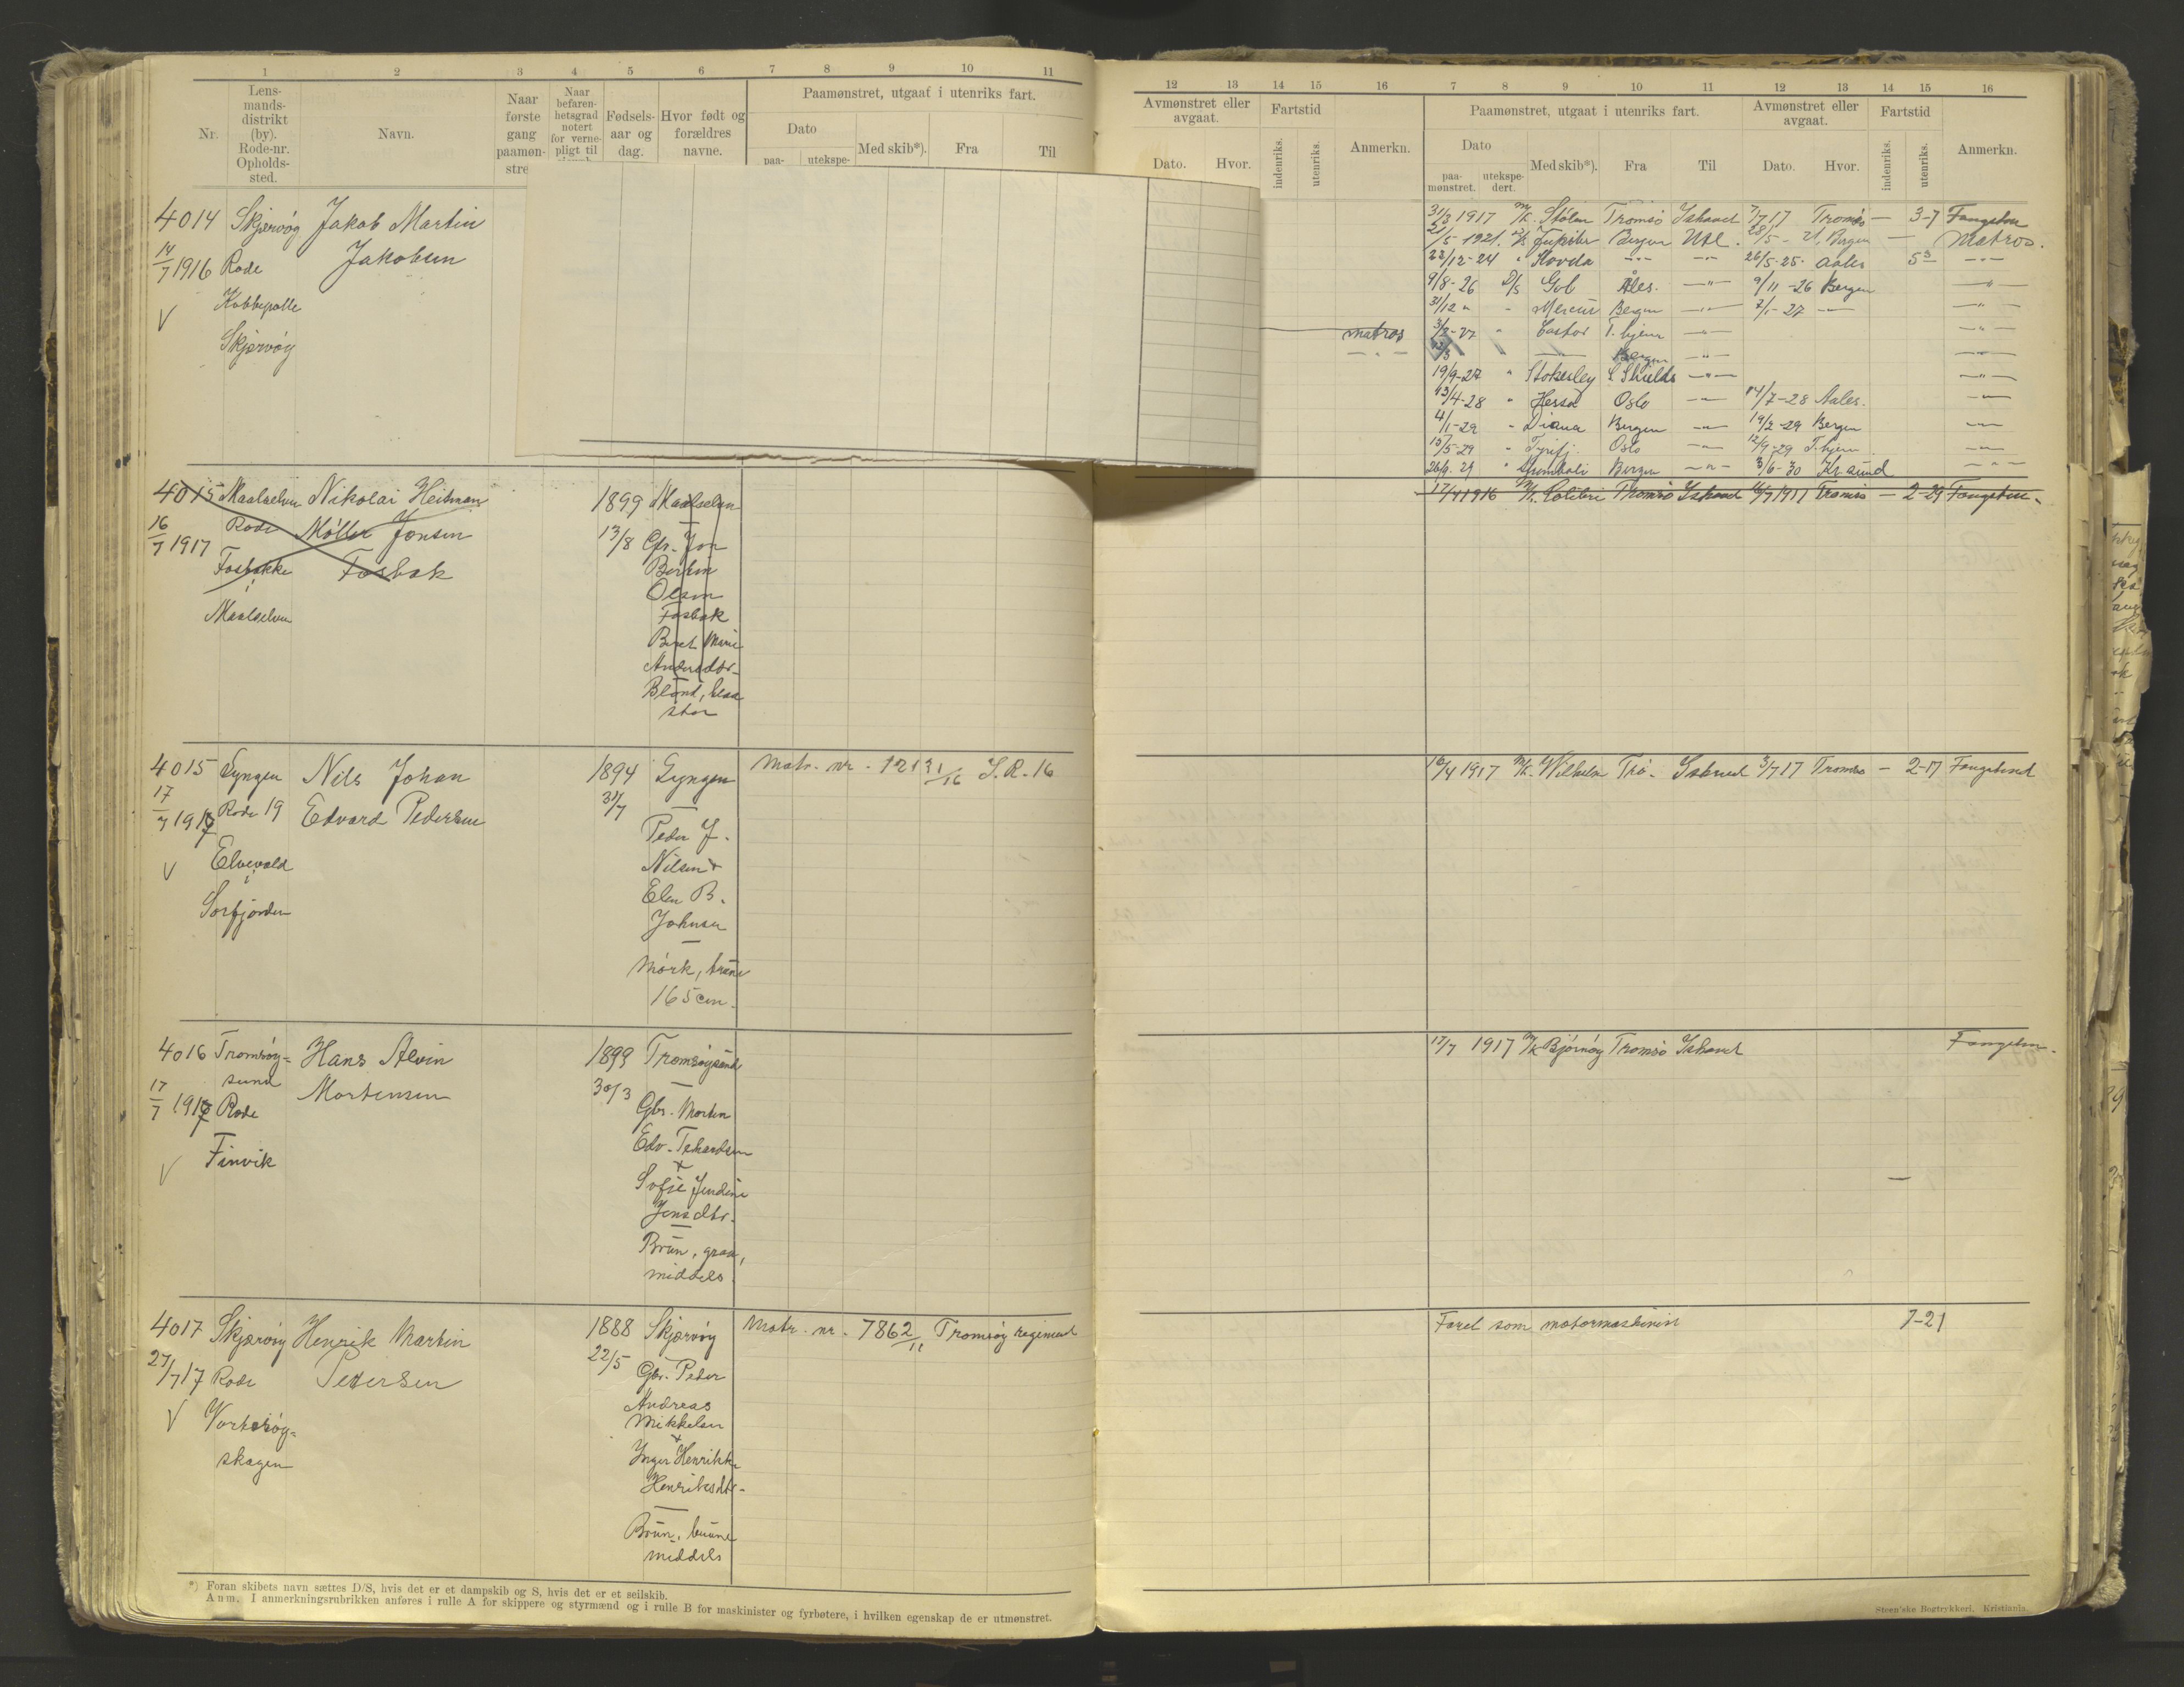 1 2 3 4 5 6 7 8 9 10 11
Nr.
Lens-
mands-
distrikt
(by).
Rode-nr.
Opholds-
sted.
Navn.
Naar
første
gang
paamøn-
stre
Naar
befaren-
hetsgrad
notert
for verne-
pligt til
Fødsels-
aar og
dag.
Hvor født og
forældres
navne.
Paamønstret, utgaat i utenriks fart.
Dato
paa-
utekspe-
Med skib*).
Fra
Til
4014 Skjervøy Jakob Martin
14/7 1916 Rode Jakobsen
Kobbepolle
V
Skjervøy
4015 Maalselven Nikolai Heitman 1899 Maalselven
16/7 1917 Rode Møller Jonsen 13/8 Gbr. Jon
Fosbakke Fosbak
i
Maalselven
Olsen
Fosbak
Beret Marie
Andersdtr.
Blond, blaa
stor
4015 Lyngen Nils Johan 1894 Lyngen Matr. nr. 121 31/16 S.R. 16
17/7 1917 Rode 19 Edvard Pedersen 31/7
Peder J.
V Elvevold
i
Nilsen +
Elen B.
Sørfjorden
Johnsen
Mørk, brune
165 cm.
4016 Tromsøy-
sund Hans Alvin 1899 Tromsøysund
17/7 1917 Rode Mortensen 30/3
Gbr. Morten
Edv.
V Finvik
+
Sofie
Jensdtr.
Brun, graa,
middels.
4017 Skjærvøy Henrik Martin 1888 Skjærvøy Matr. nr. 7862/11 Tromsøy regiment
27/7 17 Rode Pedersen 22/5 Gbr. Peder
V Vorterøy-
skagen
Andreas
Mikkelsen
+
Inger Henrikke
Henriksdtr.
Brun, brune
middels
*) Foran skibets navn sættes D/S, hvis det er et dampskib og S, hvis det er et seilskib.
Anm. I anmerkningsrubrikken anføres i rulle A for skippere og styrmænd og i rulle B for maskinister og fyrbøtere, i hvilken egenskap de er utmønstret.
12 13 14 15 16 7 8 9 10 11 12 13 14 15 16
Avmønstret eller
avgaat.
Dato. Hvor.
Fartstid
indenriks.
utenriks.
Anmerkn.
Paamønstret, utgaat i utenriks fart.
Dato
paa-
mønstret.
utekspe-
dert.
Med skib*).
Fra
Til
Avmønstret eller
avgaat.
Dato. Hvor.
Fartstid
indenriks.
utenriks.
Anmerkn.
matros
31/3 1917 M/K. Stølen Tromsø Ishavet 7/7 17 Tromsø — 3-7 Fangstm
21/5 1921. D/S Jupiter Bergen Utl. 28/5 - 21. Bergen — Matros.
22/12-24 " Hovda -"- -"- 26/5-25. Aales 5 3 -"-
9/8-26 D/S Gob Åles. -"- 9/11-26 Bergen -"-
31/12 " - Mercur Bergen -"- 7/1-27 -"- -"-
3/2-27 " Castor T.hjem -"- -"-
Bergen -"-
19/9-27 " Stokesley S. Shields -"- -"-
13/4-28 " Hessa Oslo -"- 14/7-28 Aales. -"-
4/1-29 - Diana Bergen -"- 19/2-29 Bergen -"-
15/5-29 - Tyrifj. Oslo -"- 12/9-29 T.hjem -"-
26/9.29 " Bergen -"- 3/6-30 Kr.sund -"-
17/4 1916 M/K. Colibri Tromsø Ishavet 16/7 1917 Tromsø — 2-29 Fangstm.
16/4 1917 M/K. Wilhelm Trø. Ishavet 3/7 17 Tromsø — 2-17 Fangstmd
17/7 1917 M/K Bjørnøy Tromsø Ishavet Fangstm.
Faret som motormaskinist 7-21
Steen'ske Bogtrykkeri. Kristiania.